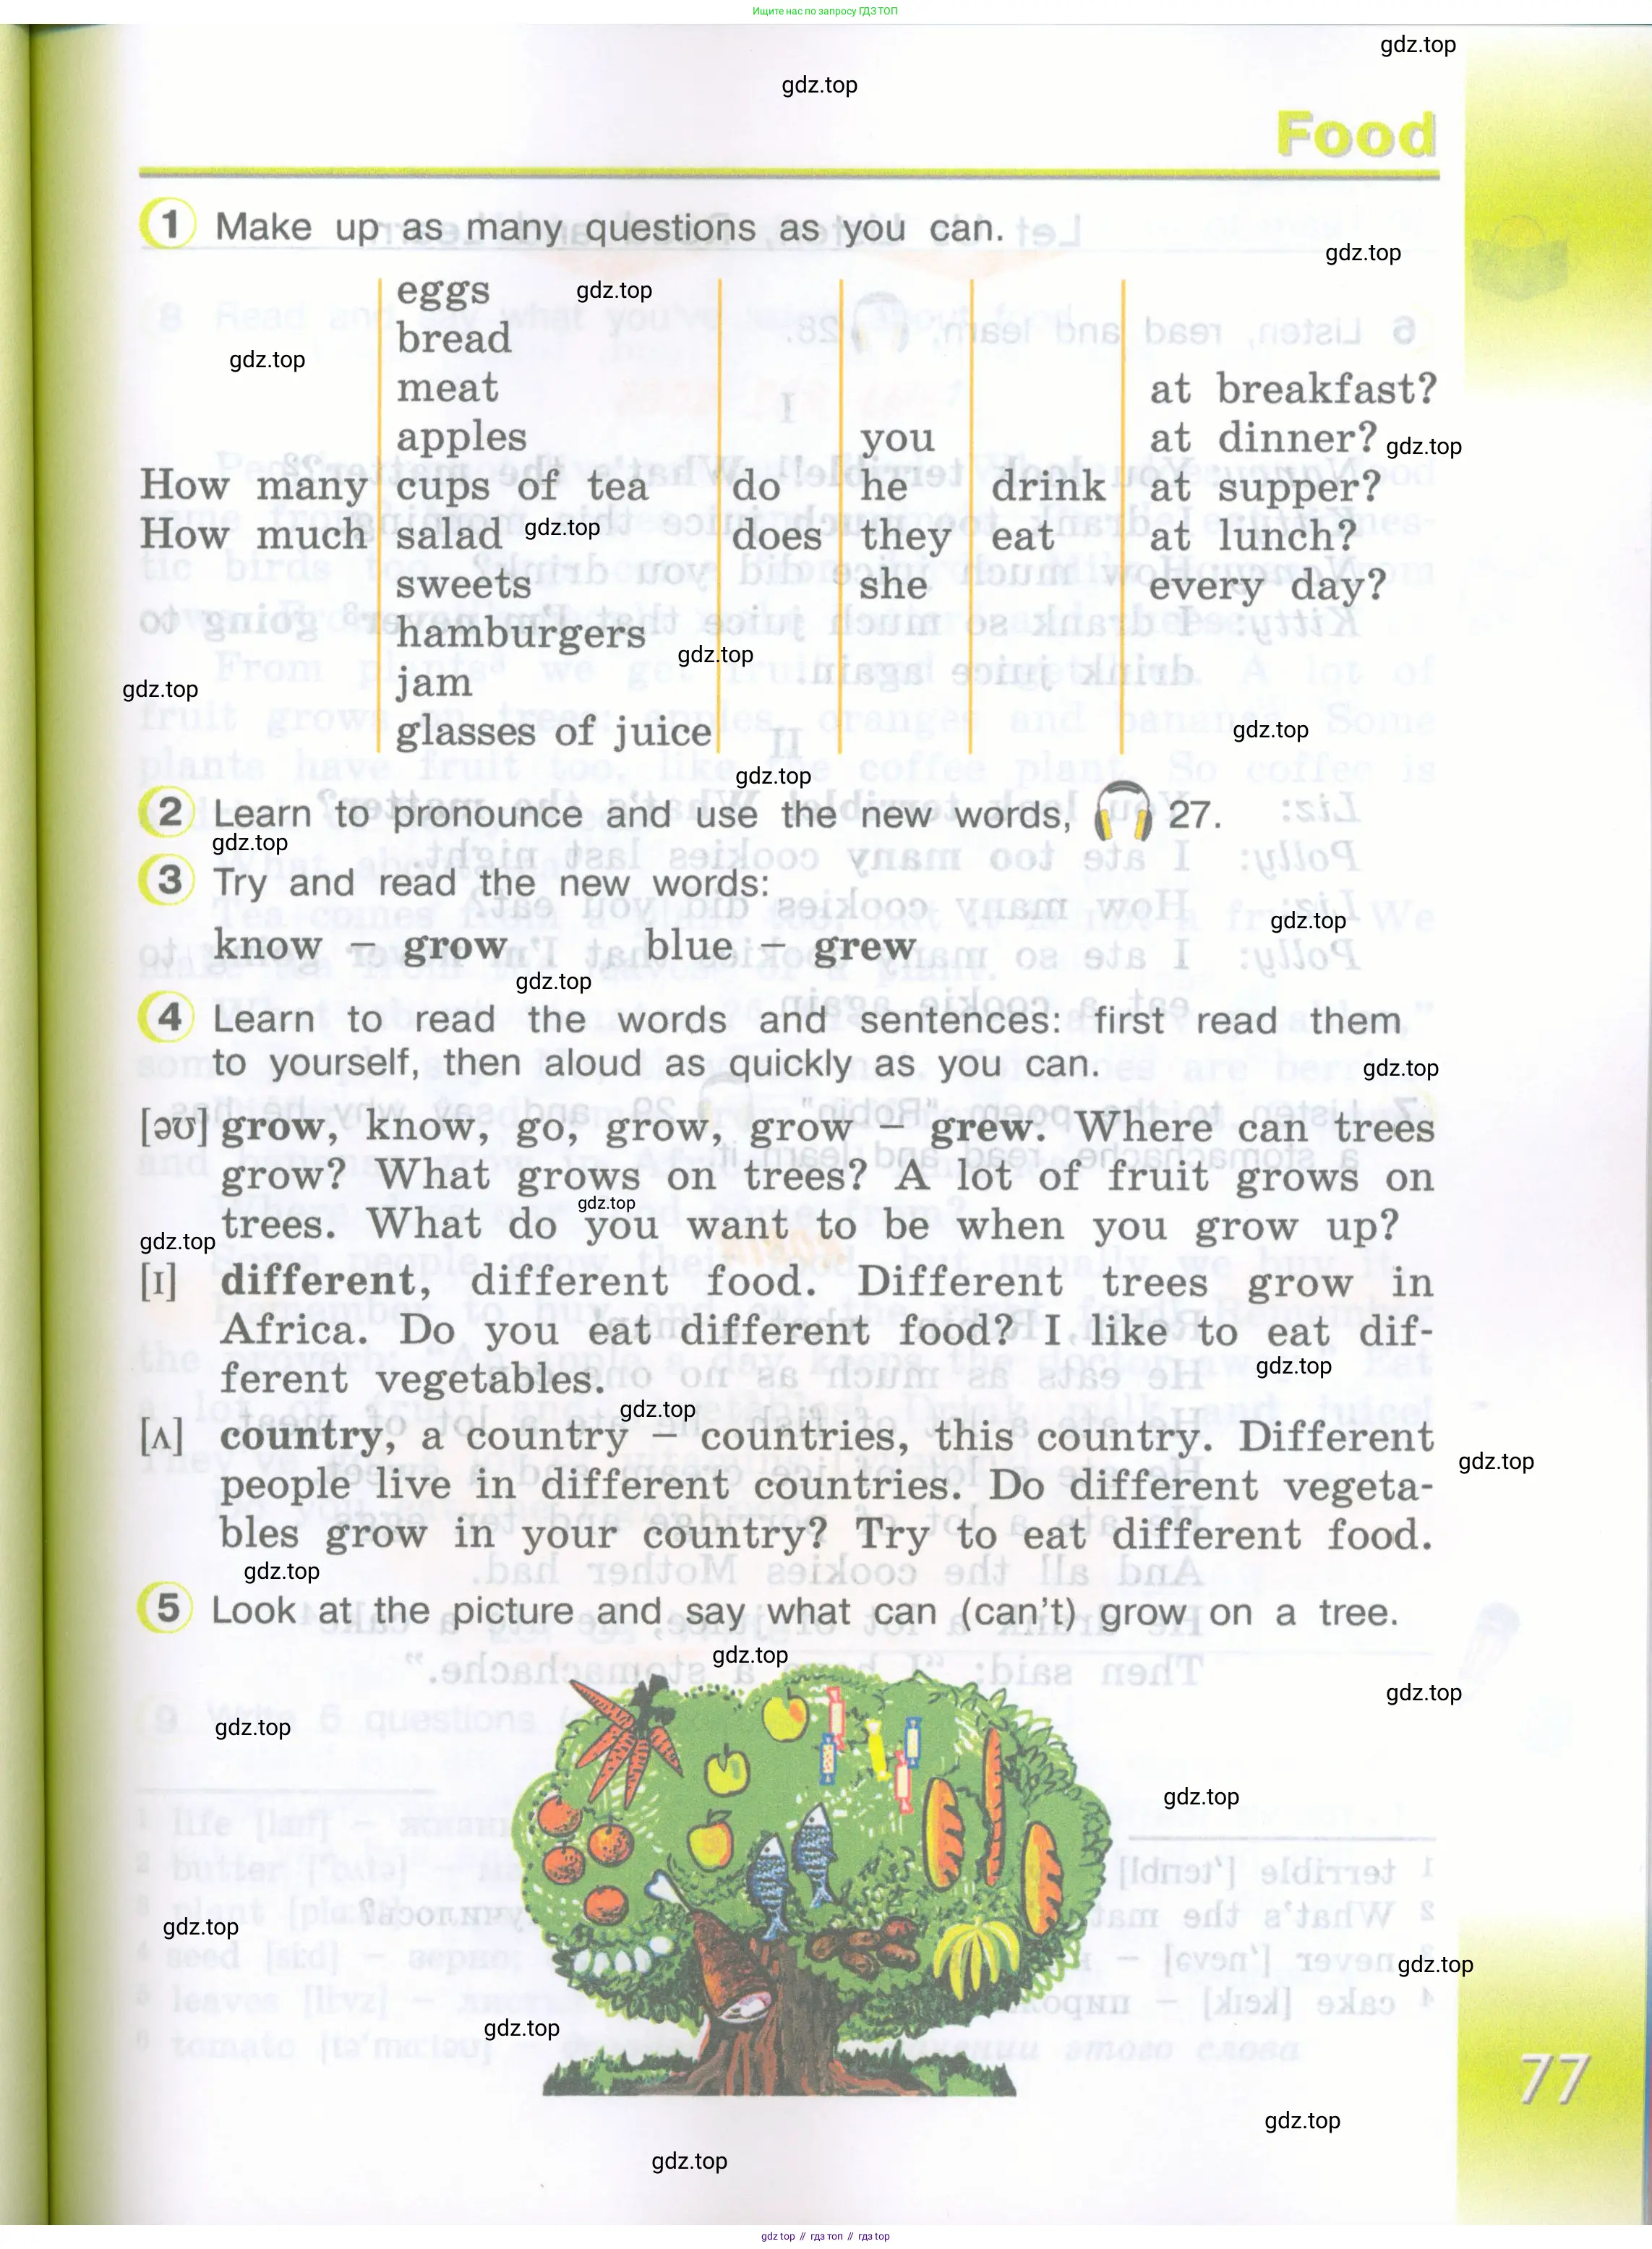 Ищите нас по запросу ГДЗ ТОП
gdz.top
gdz.top
Food
1 Make up as many questions as you can.
gdz.top
eggs gdz.top
bread
gdz.top
meat at breakfast?
apples you at dinner? gdz.top
How many cups of tea do he drink at supper?
How much salad gdz.top does they eat at lunch?
sweets she every day?
hamburgers
gdz.top
jam
gdz.top
glasses of juice gdz.top
gdz.top
2 Learn to pronounce and use the new words, 27.
gdz.top
3 Try and read the new words:
gdz.top
know – grow blue – grew
gdz.top
4 Learn to read the words and sentences: first read them
to yourself, then aloud as quickly as you can.
gdz.top
[əʊ] grow, know, go, grow, grow – grew. Where can trees
grow? What grows on trees? A lot of fruit grows on
gdz.top
trees. What do you want to be when you grow up?
gdz.top
[ɪ] different, different food. Different trees grow in
Africa. Do you eat different food? I like to eat dif-
gdz.top
ferent vegetables.
gdz.top
[ʌ] country, a country – countries, this country. Different
gdz.top
people live in different countries. Do different vegeta-
bles grow in your country? Try to eat different food.
gdz.top
5 Look at the picture and say what can (can't) grow on a tree.
gdz.top
gdz.top
gdz.top
gdz.top
gdz.top
gdz.top
gdz.top
77
gdz.top
gdz.top
gdz top // гдз топ // гдз top